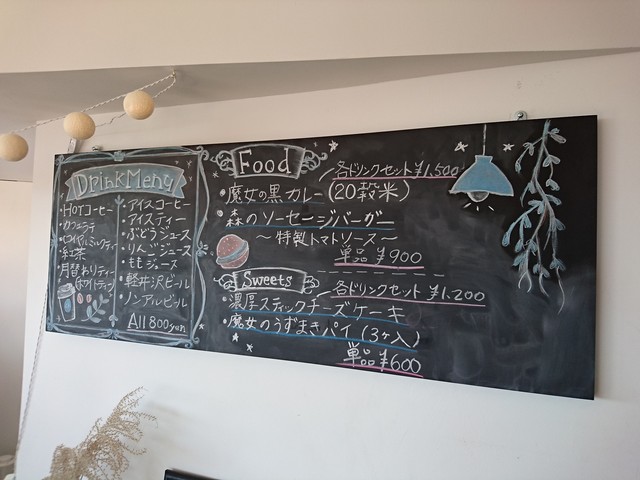 Drink Menu
・Hotコーヒー
・カフェラテ
・ロイヤルミルクティー
・紅茶
・月替わりティー
・ホワイトティー
・アイスコーヒー
・アイスティー
・ぶどうジュース
・りんごジュース
・ももジュース
・軽井沢ビール
・ノンアルビール
All 800yen
Food
各ドリンクセット ¥1,500
・魔女の黒カレー(20穀米)
・森のソーセージバーガー
〜特製トマトソース〜
単品 ¥900
Sweets
各ドリンクセット ¥1,200
・濃厚スティックチーズケーキ
・魔女のうずまきパイ(3ヶ入)
単品 ¥600